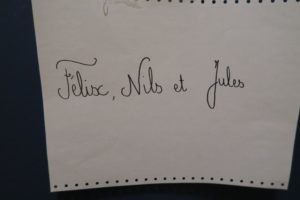 Félix, Nils et Jules